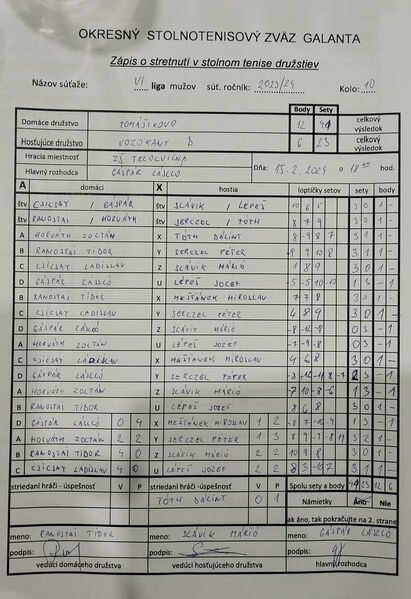 OKRESNÝ STOLNOTENISOVÝ ZVÄZ GALANTA
Zápis o stretnutí v stolnom tenise družstiev
Názov súťaže: VI liga mužov súť. ročník: 2023/24 Kolo: 10
Body Sety
Domáce družstvo TOMÁŠIKOVO 12 41 celkový výsledok
Hosťujúce družstvo VOZOKANY B 6 23 celkový výsledok
Hracia miestnosť ZŠ TELOCVIČNA
Hlavný rozhodca GAŠPÁR LÁSZLÓ Dňa: 15.2.2024 o hod.
A domáci X hostia loptičky setov sety body
štv CSICSAY / GAŠPÁR štv SLÁVIK / LÉPEŠ 10 6 5 3 0 1 -
štv RANOSTAI / HORVÁTH štv SERCZEL / TÓTH 8 7 9 3 0 1 -
A HORVÁTH ZOLTÁN X TÓTH BÁLINT 3 1 1 -
B RANOSTAI TIDOR Y SERCZEL PÉTER 3 1 1 -
C CSICSAY LADISLAV Z SLÁVIK MÁRIÓ 3 0 1 -
D GAŠPÁR LÁSZLÓ U LÉPEŠ JOZEF 1 3 - 1
B RANOSTAI TIBOR X MEŠŤÁNEK MIROSLAV 7 7 8 3 0 1 -
C CSICSAY LADISLAV Y SERCZEL PÉTER 4 8 9 3 0 1 -
D GAŠPÁR LÁSZLÓ Z SLÁVIK MÁRIÓ 0 3 - 1
A HORVÁTH ZOLTÁN U LÉPEŠ JOZEF -7 -9 -8 0 3 - 1
C CSICSAY LADISLAV X MEŠŤÁNEK MIROSLAV 4 6 8 3 0 1 -
D GAŠPÁR LÁSZLÓ Y SERCZEL PÉTER 2 3 - 1
A HORVÁTH ZOLTÁN Z SLÁVIK MÁRIÓ -7 10 -8 -6 1 3 - 1
B RANOSTAI TIBOR U LÉPEŠ JOZEF 8 6 8 3 0 1 -
D GAŠPÁR LÁSZLÓ 0 4 X MEŠŤÁNEK MIROSLAV 1 2 1 3 - 1
A HORVÁTH ZOLTÁN 2 2 Y SERCZEL PÉTER 1 3 3 1 1 -
B RANOSTAI TIBOR 4 0 Z SLÁVIK MÁRIÓ 2 2 3 1 1 -
C CSICSAY LADISLAV 4 0 U LÉPEŠ JOZEF 2 2 3 1 1 -
striedaní hráči - úspešnosť V P striedaní hráči -úspešnosť V P Spolu sety a body 41 23 12 6
TÓTH BÁLINT 0 1 Námietky Áno Nie
ak áno, tak pokračujte na 2. strane
meno: RANOSTAI TIDOR meno: SLÁVIK MÁRIÓ meno: GAŠPÁR LÁSZLÓ
podpis: podpis: podpis:
vedúci domáceho družstva vedúci hosťujúceho družstva hlavný rozhodca